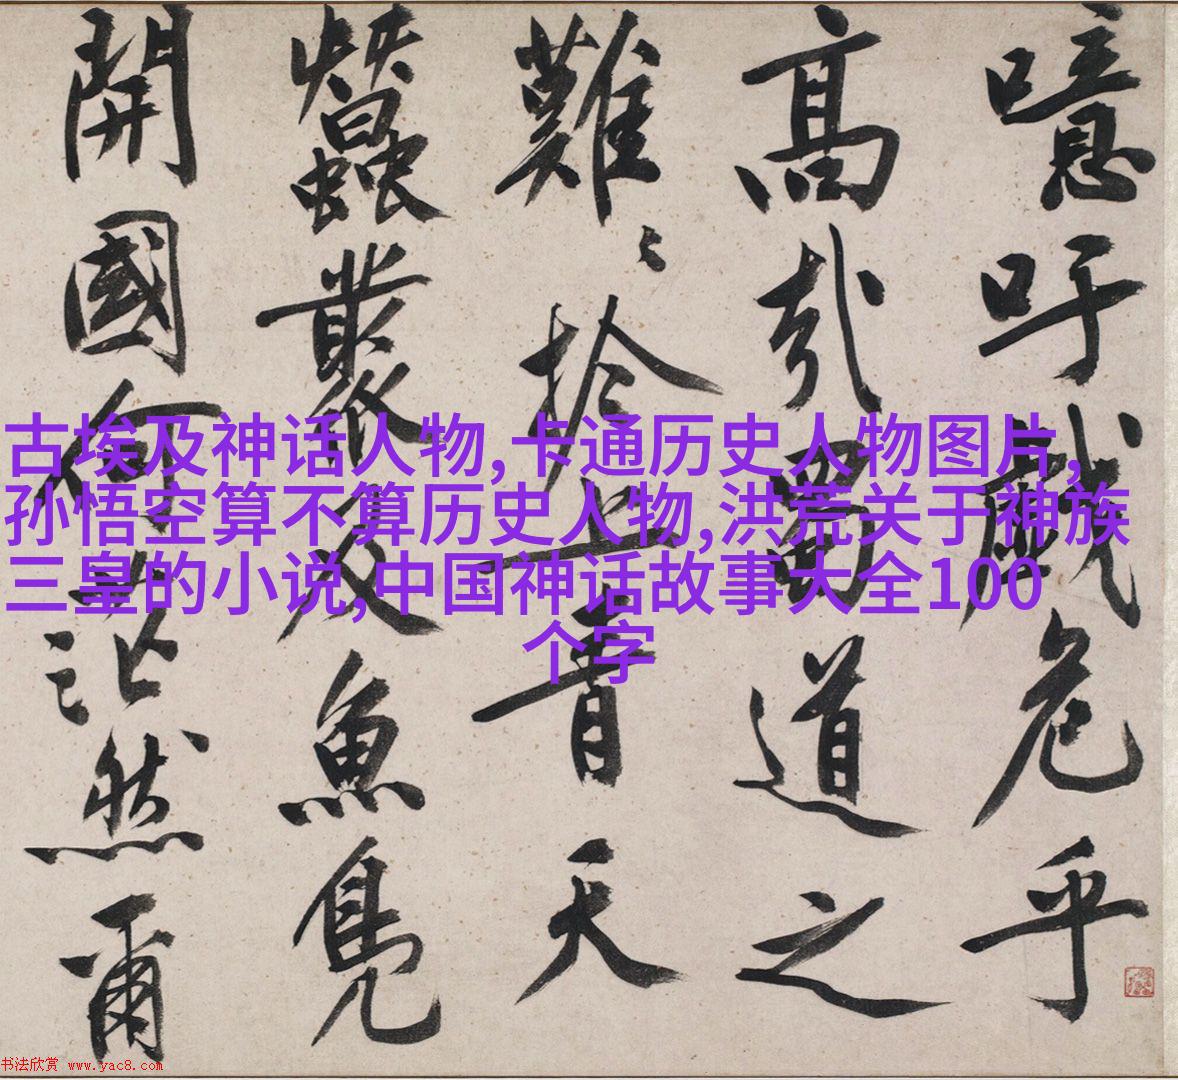 噫吁戲危乎
高哉蜀道之
難〻扵上青天
蠶叢及魚鳧
開國何茫然爾
古埃及神话人物,卡通历史人物图片,
孙悟空算不算历史人物,洪荒关于神族
三皇的小说,中国神话故事大全100
个字
书法欣赏 www.yac8.com